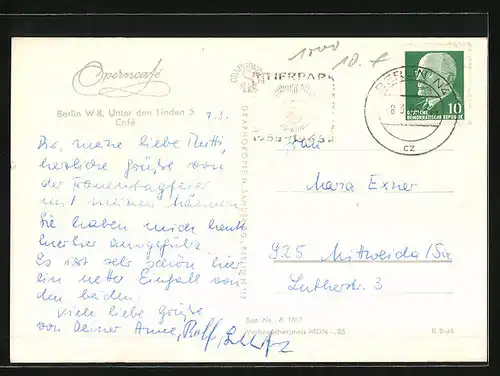 1000 10.-
Operncafé
TIERPARK
BERLIN N4
10
DEUTSCHE
DEMOKRATISCHE REPUBLIK
Berlin W 8, Unter den Linden 5
Café
7.3.
cz
Frau
meine liebe Mutti,
herzliche Grüße von
der Frauentagfeier
mit meinen Männern.
Sie haben mich heute
hierher ausgeführt.
Es ist sehr schön hier
ein netter Einfall von
den beiden.
Viele liebe Grüße
von Deiner Anne, Rolf,
Mara Exner
925 Mittweida/Sa
Lutherstr. 3
Best.-Nr. A
Verbraucherpreis MDN -,25